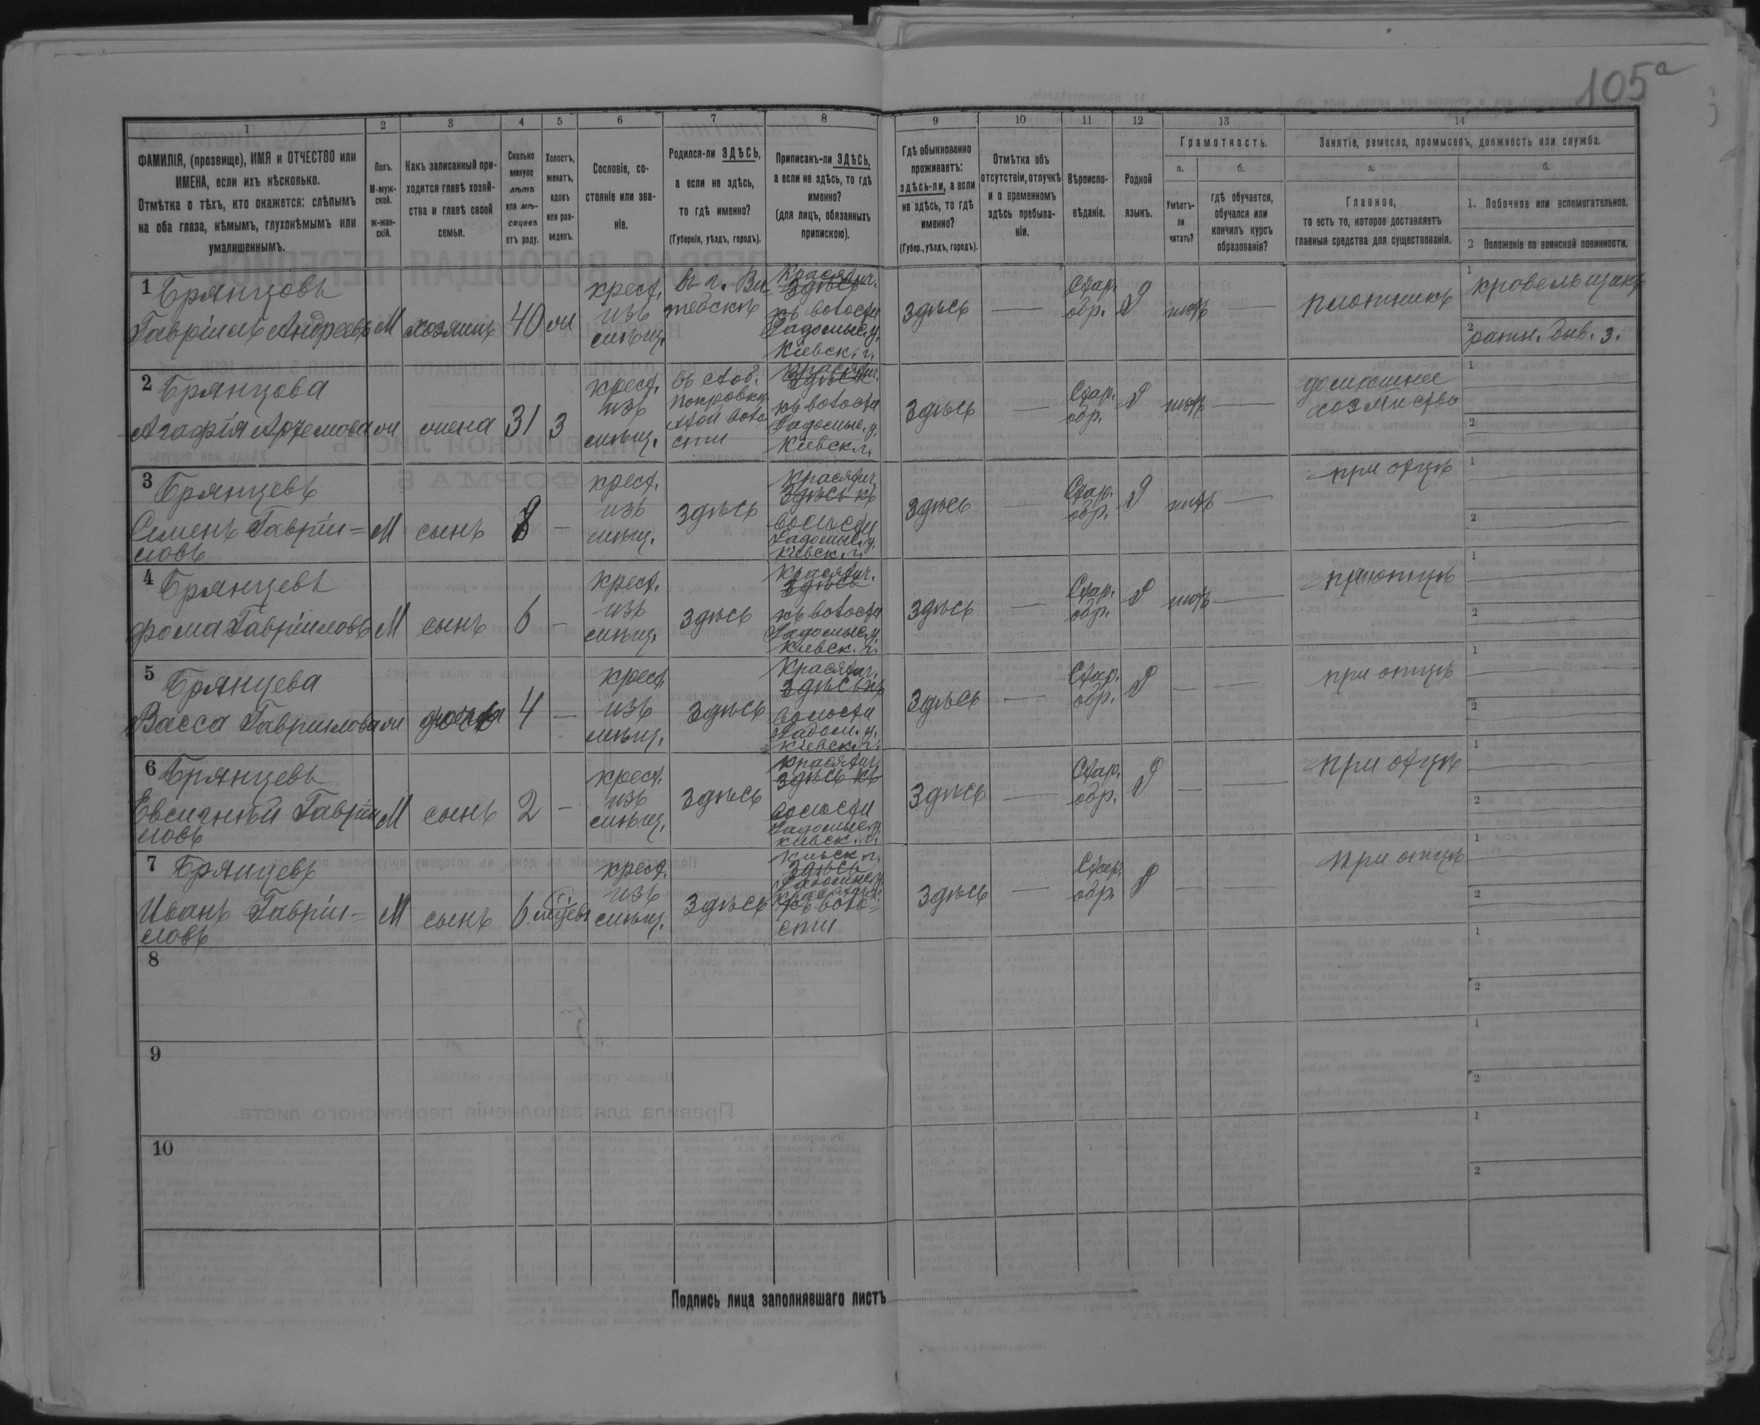 105а
1 2 3 4 5 6 7 8 9 10 11 12 13 14
ФАМИЛІЯ, (прозвище), ИМЯ и ОТЧЕСТВО или
ИМЕНА, если ихъ нѣсколько.
Отмѣтка о тѣхъ, кто окажется: слѣпымъ
на оба глаза, нѣмымъ, глухонѣмымъ или
умалишеннымъ.
Полъ.
М-муж-
ской.
Ж-жен-
скій.
Какъ записанный при-
ходится главѣ хозяй-
ства и главѣ своей
семьи.
Сколько
минуло
лѣтъ
или мѣ-
сяцевъ
отъ роду.
Холостъ,
женатъ,
вдовъ
или раз-
веденъ.
Сословіе, со-
стояніе или зва-
ніе.
Родился-ли ЗДѢСЬ,
а если не здѣсь,
то гдѣ именно?
(Губернія, уѣздъ, городъ).
Приписанъ-ли ЗДѢСЬ,
а если не здѣсь, то гдѣ
именно?
(для лицъ, обязанныхъ
припискою).
Гдѣ обыкновенно
проживаетъ:
здѣсь-ли, а если
не здѣсь, то гдѣ
именно?
(Губер., уѣздъ, городъ).
Отмѣтка объ
отсутствіи, отлучкѣ
и о временномъ
здѣсь пребыва-
ніи.
Вѣроиспо-
вѣданіе.
Родной
языкъ.
Грамотность.
а.
Умѣетъ-
ли
читать?
б.
гдѣ обучается,
обучался или
кончилъ курсъ
образованія?
Занятіе, ремесло, промыселъ, должность или служба.
а.
Главное,
то есть то, которое доставляетъ
главныя средства для существованія.
б.
1. Побочное или вспомогательное.
2 Положеніе по воинской повинности.
1 Брянцовъ
Гавріилъ Андреевъ М хозяинъ 40
крест.
изъ
мѣщ.
въ г. Ви-
тебскѣ
Красятич.
здѣсь
къ волости
Радомыс. у.
Кіевск. г.
здѣсь —
Стар.
обр. Р —
плотникъ
1 кровельщикъ
2 ратн.
2 Брянцова
Агафія Артемова жена 31 З
крест.
изъ
мѣщ.
въ
Покровка
сти
здѣсь
къ волости
Радомыс. у.
Кіевск. г.
здѣсь —
Стар.
обр. Р —
домашнее
хозяйство
1
2
3 Брянцевъ
Семенъ Гавріи=
ловъ М сынъ 8 —
крест.
изъ
мѣщ.
здѣсь
Красятич.
здѣсь къ
волости
Радомыс. у.
Кіевск. г.
здѣсь —
Стар.
обр. Р —
при отцѣ
1
2
4 Брянцевъ
Фома Гавріиловъ М сынъ 6 —
крест.
изъ
мѣщ.
здѣсь
Красятич.
здѣсь
къ волости
Радомыс. у.
Кіевск. г.
здѣсь —
Стар.
обр. Р —
при отцѣ
1
2
5 Брянцева
Васса Гавриилова 4 —
крест.
изъ
мѣщ.
здѣсь
Красятич.
здѣсь къ
волости
Радом. у.
Кіевск. г.
здѣсь —
Стар.
обр. Р — —
при отцѣ
1
2
6 Брянцевъ
Евсигній Гавріи
ловъ М сынъ 2 —
крест.
изъ
мѣщ.
здѣсь
Красятич.
здѣсь къ
волости
Радомыс. у.
Кіевск. г.
здѣсь —
Стар.
обр. Р — —
при отцѣ
1
2
7 Брянцевъ
Иванъ Гавріи=
ловъ М сынъ 6
крест.
изъ
мѣщ.
здѣсь
Кіевск. г.
здѣсь
Радомыс. у.
къ воло=
сти
здѣсь —
Стар.
обр. Р —
при отцѣ
1
2
8
1
2
9
1
2
10
1
2
Подпись лица заполнявшаго листъ